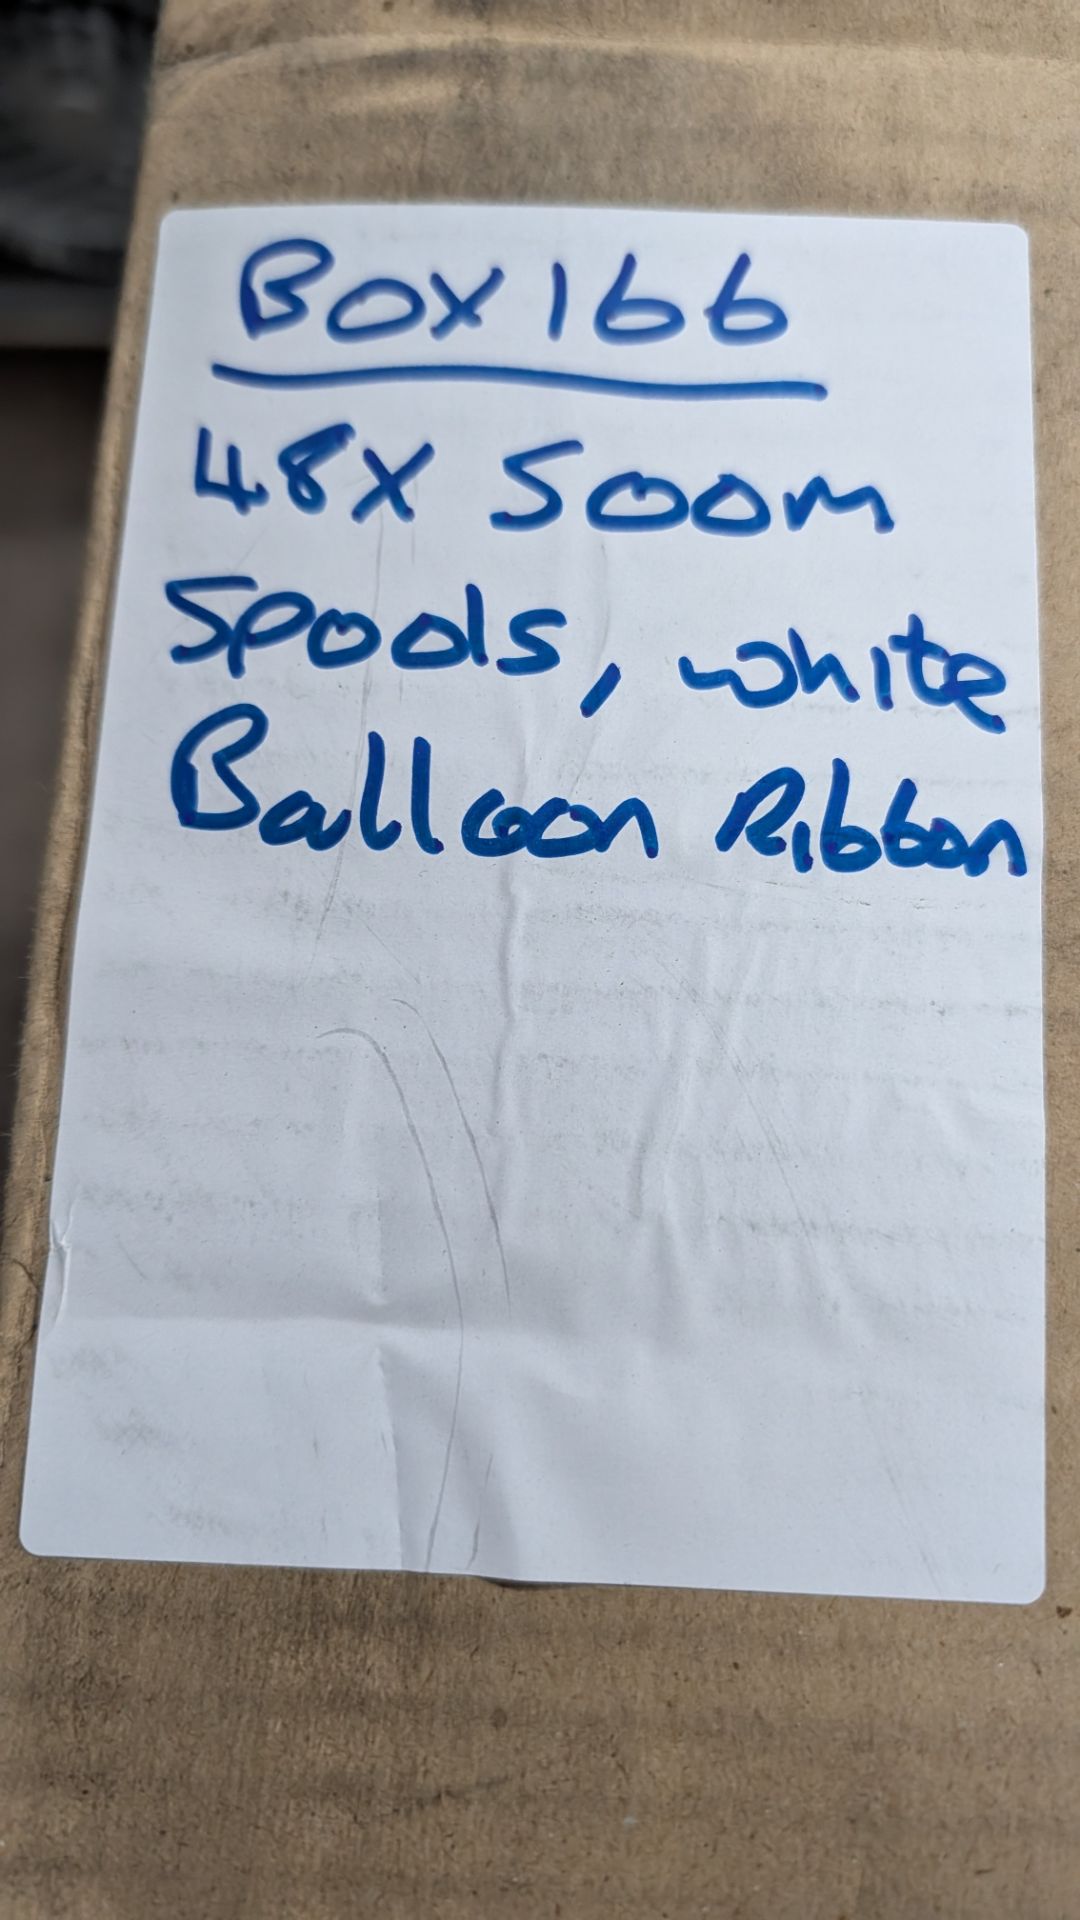 Box 166
48X 500m
Spools, white
Balloon Ribbon